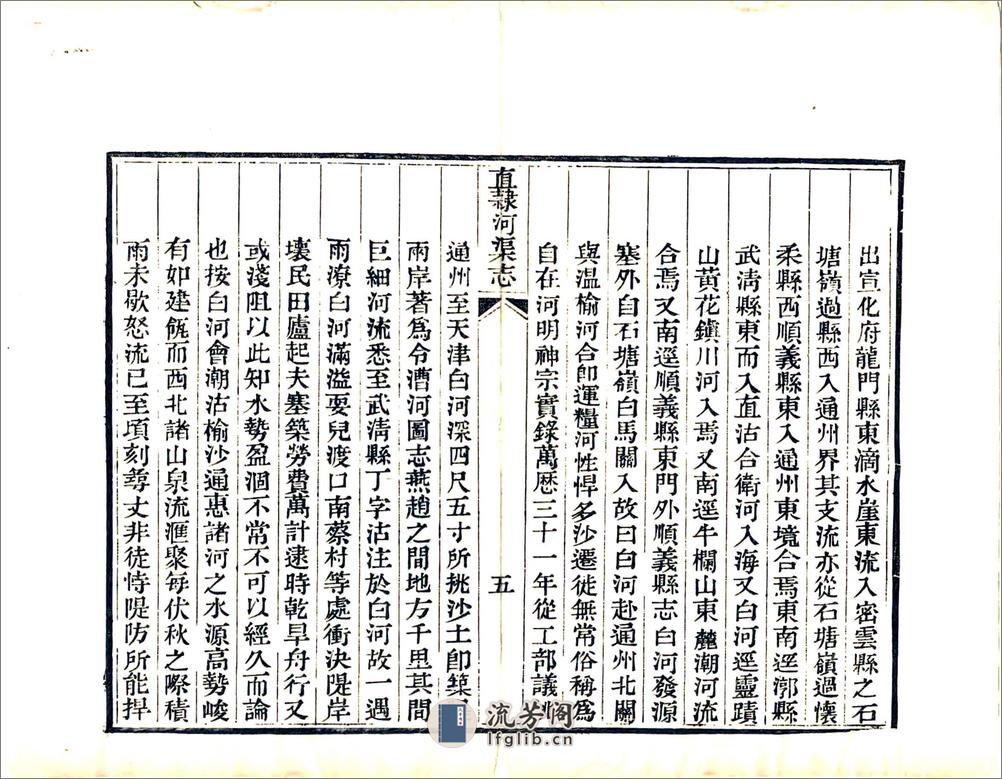 出宣化府龍門縣東滴水崖東流入密雲縣之石
塘嶺過縣西入通州界其支流亦從石塘嶺過懷
柔縣西順義縣東入通州東境合焉東南逕漷縣
武淸縣東而入直沽合衛河入海又白河逕靈蹟
山黃花鎭川河入焉又南逕牛欄山東麓潮河流
合焉又南逕順義縣東門外順義縣志白河發源
塞外自石塘嶺白馬關入故曰白河赴通州北關
與溫榆河合卽運糧河性悍多沙遷徙無常俗稱爲
自在河明神宗實錄萬厯三十一年從工部議
直隸河渠志
五
通州至天津白河深四尺五寸所挑沙土卽築
兩岸著爲令漕河圖志燕趙之間地方千里其間
巨細河流悉至武淸縣丁字沽注於白河故一遇
雨潦白河滿溢耍兒渡口南蔡村等處衝決隄岸
壞民田廬起夫塞築勞費萬計逮時乾旱舟行又
或淺阻以此知水勢盈涸不常不可以經久而論
也按白河會潮沽榆沙通惠諸河之水源高勢峻
有如建瓴而西北諸山泉流滙聚每伏秋之際積
雨未歇怒流已至頃刻尋丈非徒恃隄防所能捍
流芳阁
lfglib.cn